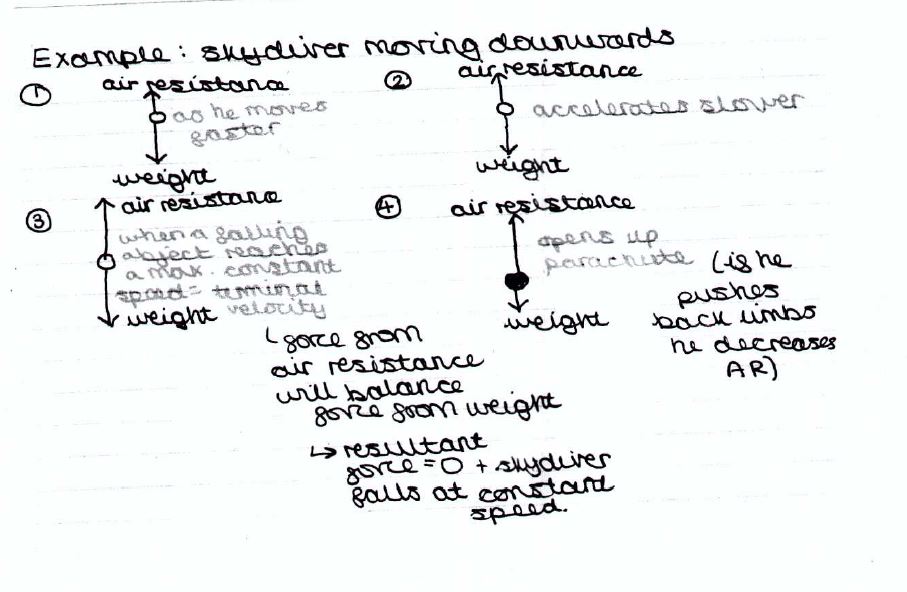 Example: skydiver moving downwards
① air resistance
as he moves
faster
weight
② air resistance
accelerates slower
weight
③ air resistance
when a falling
object reaches
a max. constant
speed = terminal
velocity
weight
↳ force from
air resistance
will balance
force from weight
↳ resultant
force = 0 + skydiver
falls at constant
speed.
④ air resistance
opens up
parachute
weight
(if he
pushes
back limbs
he decreases
AR)